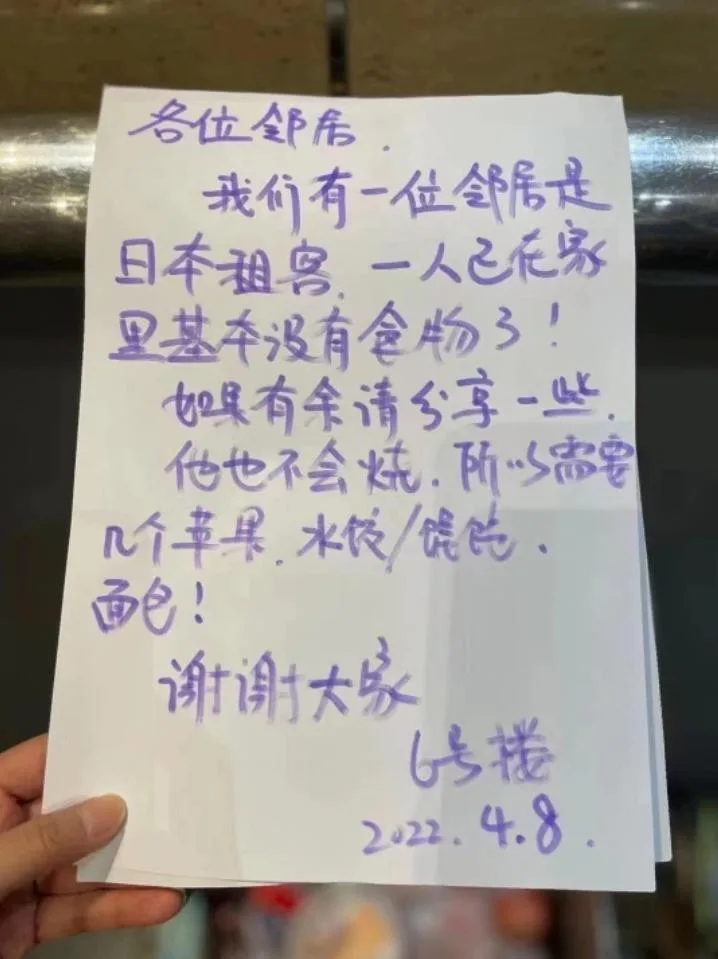 各位邻居.
我们有一位邻居是
日本租客, 一人已在家
里基本没有食物了!
如果有余请分享一些.
他也不会烧, 所以需要
几个苹果, 水饺/馄饨.
面包!
谢谢大家
6号楼
2022.4.8.